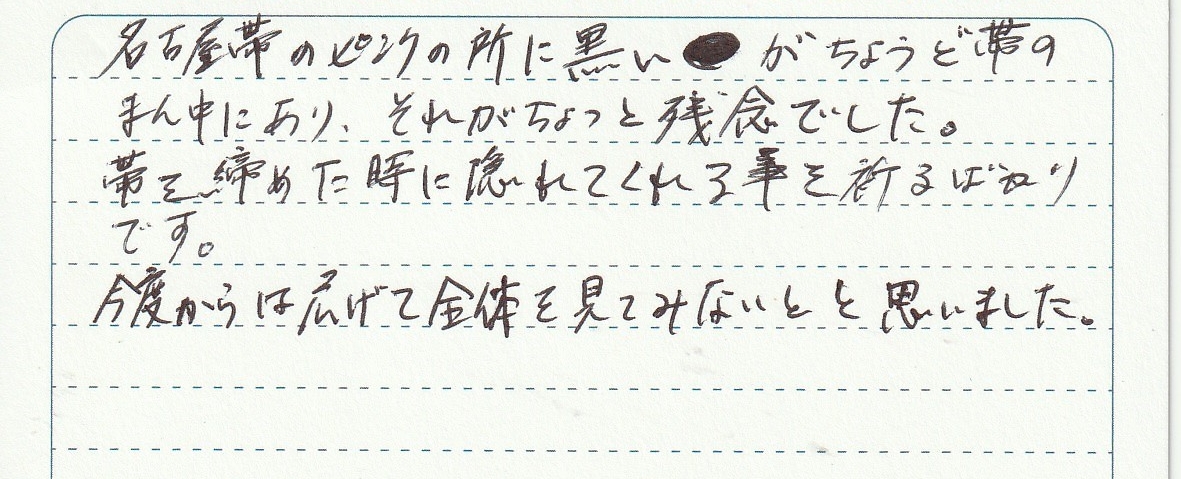 名古屋帯のピンクの所に黒い●がちょうど帯の
まん中にあり、それがちょっと残念でした。
帯を締めた時に隠れてくれる事を祈るばかり
です。
今度からは広げて全体を見てみないとと思いました。